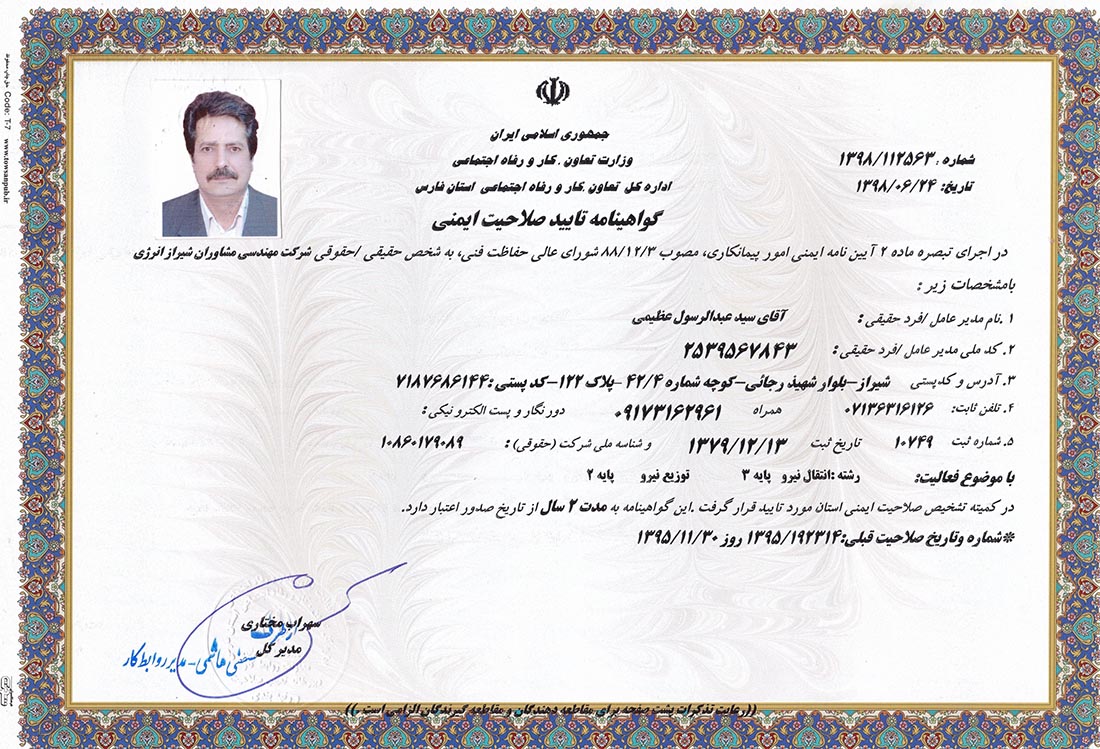 جمهوری اسلامی ایران
وزارت تعاون ،کار و رفاه اجتماعی
اداره کل تعاون ،کار و رفاه اجتماعی استان فارس
شماره : ۱۳۹۸/۱۱۲۵۶۳
تاریخ: ۱۳۹۸/۰۶/۲۴
گواهینامه تایید صلاحیت ایمنی
در اجرای تبصره ماده ۲ آیین نامه ایمنی امور پیمانکاری، مصوب ۸۸/۱۲/۳ شورای عالی حفاظت فنی، به شخص حقیقی /حقوقی شرکت مهندسی مشاوران شیراز انرژی
بامشخصات زیر :
۱ .نام مدیر عامل /فرد حقیقی : آقای سید عبدالرسول عظیمی
۲. کد ملی مدیر عامل /فرد حقیقی : ۲۵۳۹۵۶۷۸۴۳
۳. آدرس و کدپستی شیراز-بلوار شهید رجائی-کوچه شماره ۴۲/۴ -پلاک ۱۲۲-کد پستی :۷۱۸۷۶۸۶۱۴۴
۴. تلفن ثابت: ۰۷۱۳۶۳۱۶۱۲۶ همراه ۰۹۱۷۳۱۶۲۹۶۱ دور نگار و پست الکترونیکی :
۵. شماره ثبت ۱۰۷۴۹ تاریخ ثبت ۱۳۷۹/۱۲/۱۳ و شناسه ملی شرکت (حقوقی) : ۱۰۸۶۰۱۷۹۰۸۹
با موضوع فعالیت: رشته :انتقال نیرو پایه ۳ توزیع نیرو پایه ۲
در کمیته تشخیص صلاحیت ایمنی استان مورد تایید قرار گرفت .این گواهینامه به مدت ۲ سال از تاریخ صدور اعتبار دارد.
*شماره وتاریخ صلاحیت قبلی:۱۳۹۵/۱۹۲۳۱۴ روز ۱۳۹۵/۱۱/۳۰
سهراب مختاری
از طرف
مدیر کل
هاشمی - مدیر روابط کار
((رعایت تذکرات پشت صفحه برای مقاطعه دهندگان و مقاطعه گیرندگان الزامی است .))
Code: T-7 www.towsanpub.ir